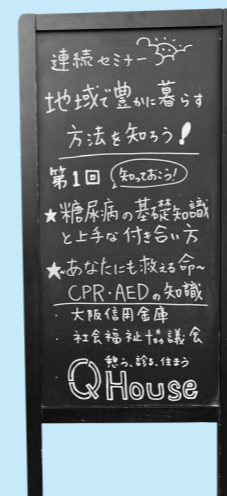 連続セミナー
地域で豊かに暮らす
方法を知ろう!
第1回 (知っておこう!)
★糖尿病の基礎知識
と上手な付き合い方
★~あなたにも救える命~
CPR・AEDの知識
・大阪信用金庫
・社会福祉協議会
憩う、診る、住まう
QHOUSE